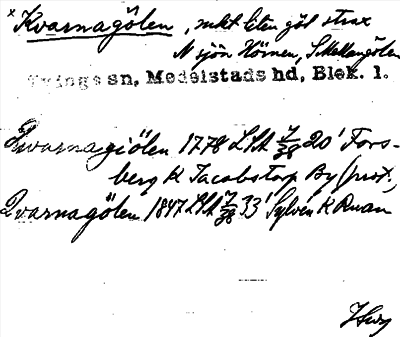 × Kvarnagölen, mkt liten göl strax
N sjön Hörnen, S Mellangölen
Tvings sn, Medelstads hd, Blek. l.
Qvarnagiölen 1778 LSA 7/38 20' Fors-
berg K Jacobstorp By (prot.,
Qvarnagölen 1847 LSA 7/38 33' Sylvén K Ruan